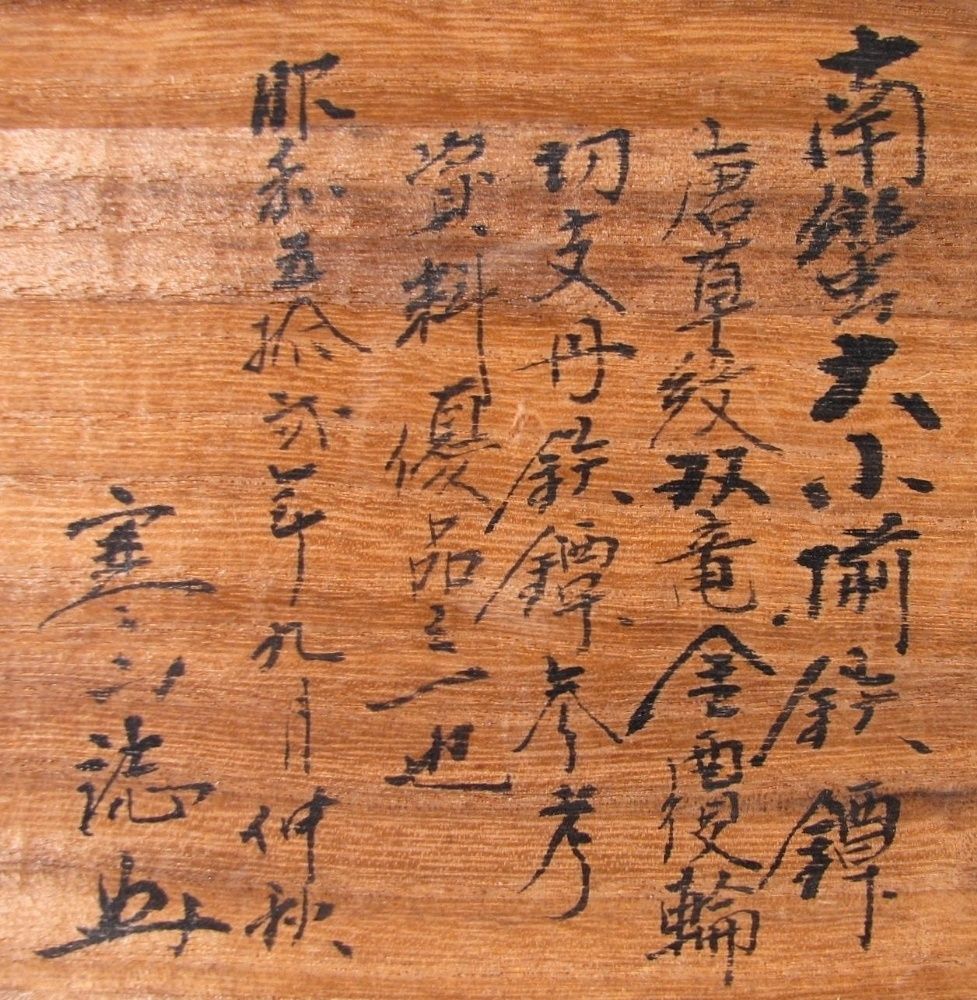 南蠻大小揃鉄鐔
唐草紋双竜金覆輪
切支丹鉄鐔参考
資料優品之一也
昭和五拾弐年九月仲秋
寒山誌